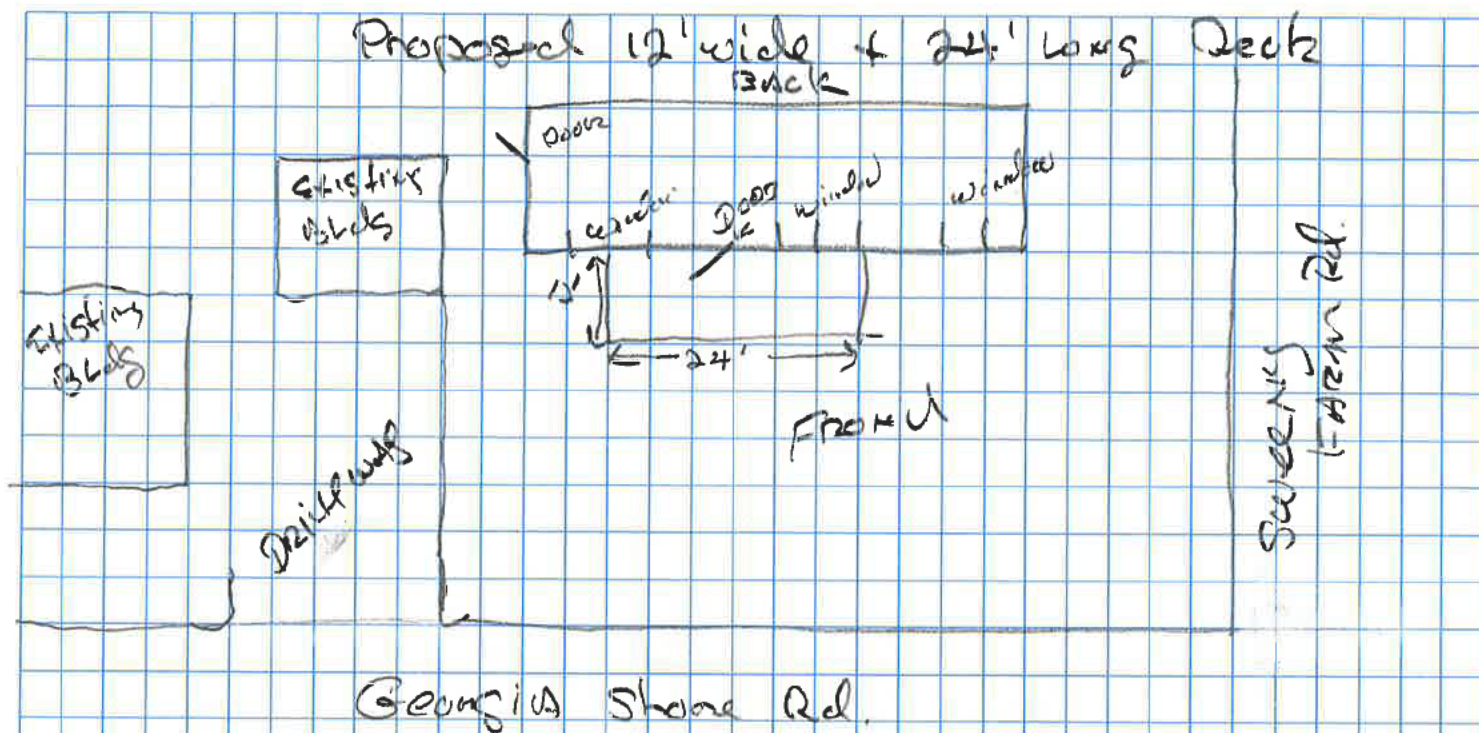 Proposed 12' wide + 24' Long Deck
BACK
Door
Existing
BLdg
window
Door
window
window
12'
24'
Existing
BLdg
FRONt
Driveway
Sweeny
FARM Rd.
Georgia Shore Rd.